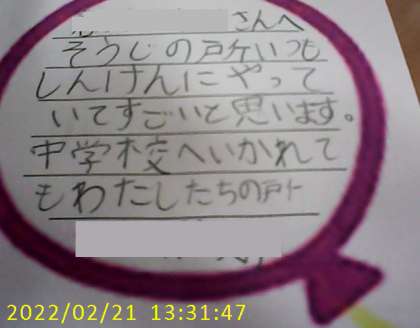 さんへ
そうじの時いつも
しんけんにやって
いてすごいと思います。
中学校へいかれて
もわたしたちの
2022/02/21 13:31:47